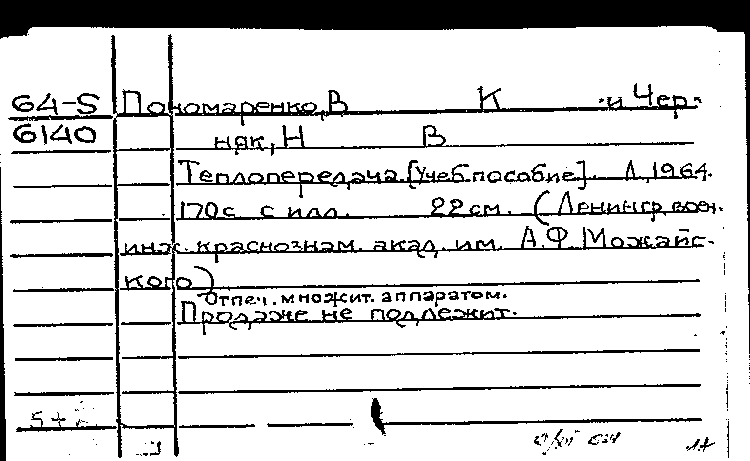 64-S Пономаренко, В К и Чер-
6140 няк, Н В
Теплопередача. [Учеб. пособие]. Л., 1964.
170 с. с илл. 22 см. (Ленингр. воен.
инж. краснознам. акад. им. А.Ф. Можайс-
кого)
Отпеч. множит. аппаратом.
Продаже не подлежит.